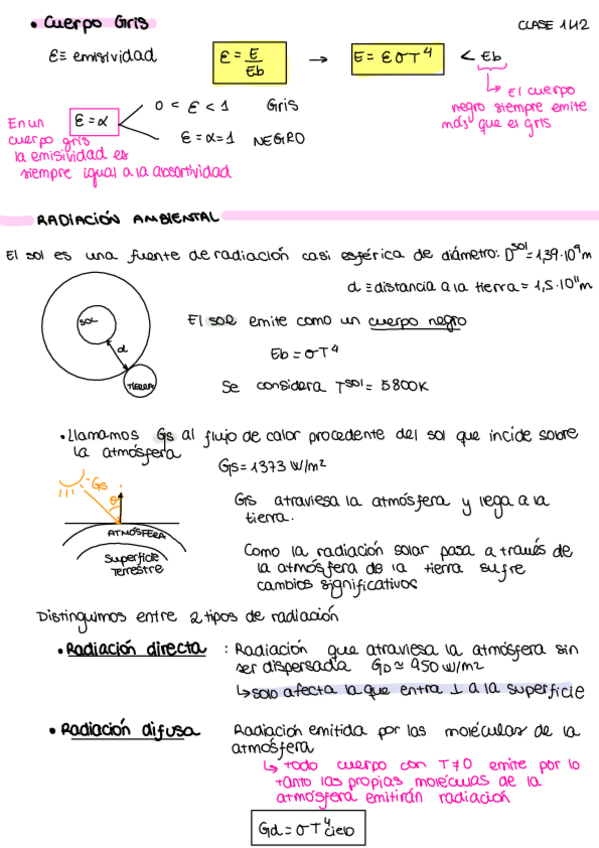 • Cuerpo Gris
CLASE 14.12
ε ≡ emisividad
ε = E/Eb → E = εσT⁴ < Eb
↳ El cuerpo
negro siempre emite
más que el gris
En un
cuerpo gris
la emisividad es
siempre igual a la absortividad
ε = α
0 < ε < 1 Gris
ε = α = 1 NEGRO
RADIACIÓN AMBIENTAL
El sol es una fuente de radiación casi esférica de diámetro: D^sol = 1,39·10⁹ m
d ≡ distancia a la tierra = 1,5·10¹¹ m
SOL
d
TIERRA
El sol emite como un cuerpo negro
Eb = σT⁴
Se considera T^sol = 5800K
• Llamamos Gs al flujo de calor procedente del sol que incide sobre
la atmósfera
Gs = 1373 W/m²
Gs
θ
ATMÓSFERA
Superficie
Terrestre
Gs atraviesa la atmósfera y llega a la
tierra.
Como la radiación solar pasa a través de
la atmósfera de la tierra sufre
cambios significativos
Distinguimos entre 2 tipos de radiación
• Radiación directa : Radiación que atraviesa la atmósfera sin
ser dispersada G_D ≃ 950 W/m2
↳ solo afecta la que entra ⊥ a la superficie
• Radiación difusa Radiación emitida por las moléculas de la
atmósfera
↳ todo cuerpo con T≠0 emite por lo
tanto las propias moléculas de la
atmósfera emitirán radiación
Gd = σT⁴cielo